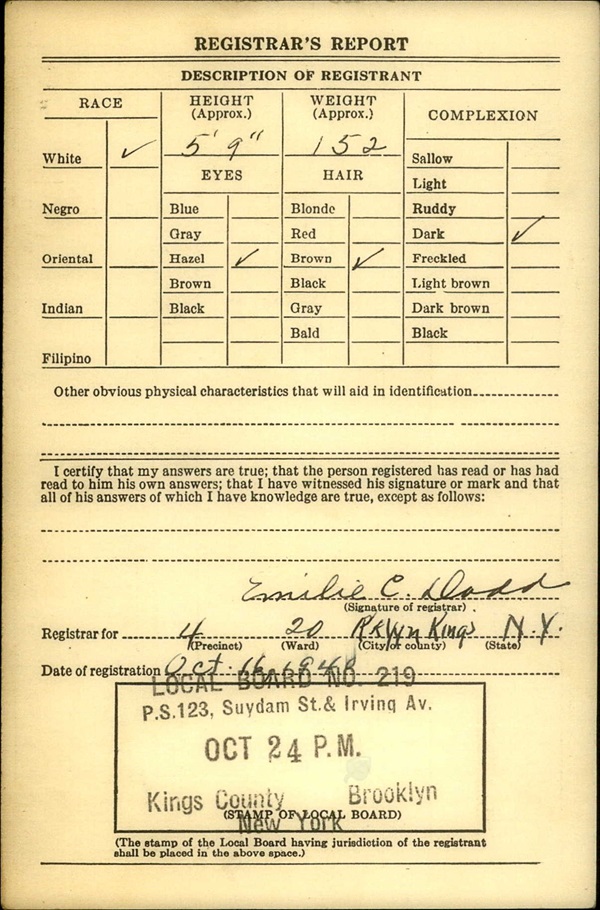 REGISTRAR'S REPORT
DESCRIPTION OF REGISTRANT
RACE
HEIGHT
(Approx.)
WEIGHT
(Approx.)
COMPLEXION
5' 9"
152
White ✓
Sallow
EYES
HAIR
Light
Negro
Blue
Blonde
Ruddy
Gray
Red
Dark ✓
Oriental
Hazel ✓
Brown ✓
Freckled
Brown
Black
Light brown
Indian
Black
Gray
Dark brown
Bald
Black
Filipino
Other obvious physical characteristics that will aid in identification
I certify that my answers are true; that the person registered has read or has had
read to him his own answers; that I have witnessed his signature or mark and that
all of his answers of which I have knowledge are true, except as follows:
Emilie C. Dodd
(Signature of registrar)
Registrar for 4 20 Bklyn Kings N.Y.
(Precinct) (Ward) (City or county) (State)
Date of registration Oct. 16, 1940
LOCAL BOARD NO. 219
P.S.123, Suydam St. & Irving Av.
OCT 24 P.M.
Kings County Brooklyn
(STAMP OF LOCAL BOARD)
New York
(The stamp of the Local Board having jurisdiction of the registrant
shall be placed in the above space.)